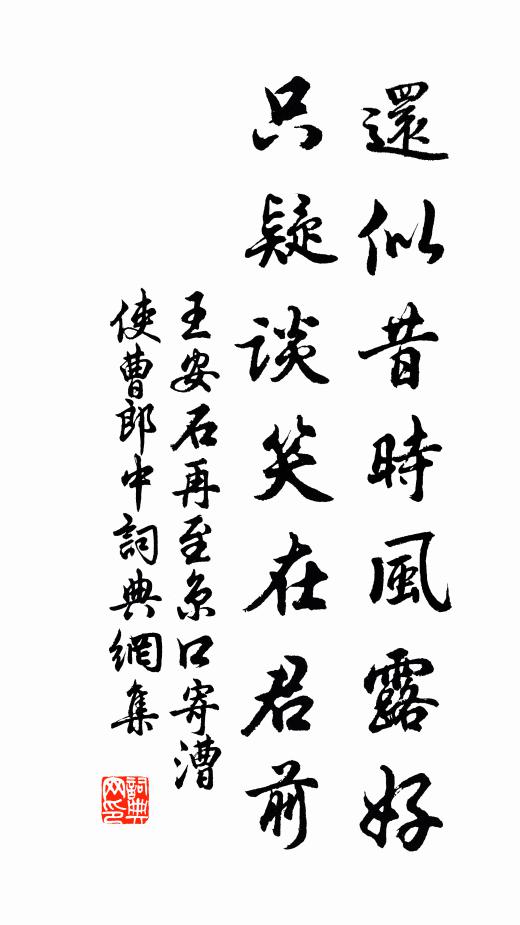 還似昔時風露好
只疑談笑在君前
王安石再至京口寄漕
使曹郎中詞典網集
詞典
网印